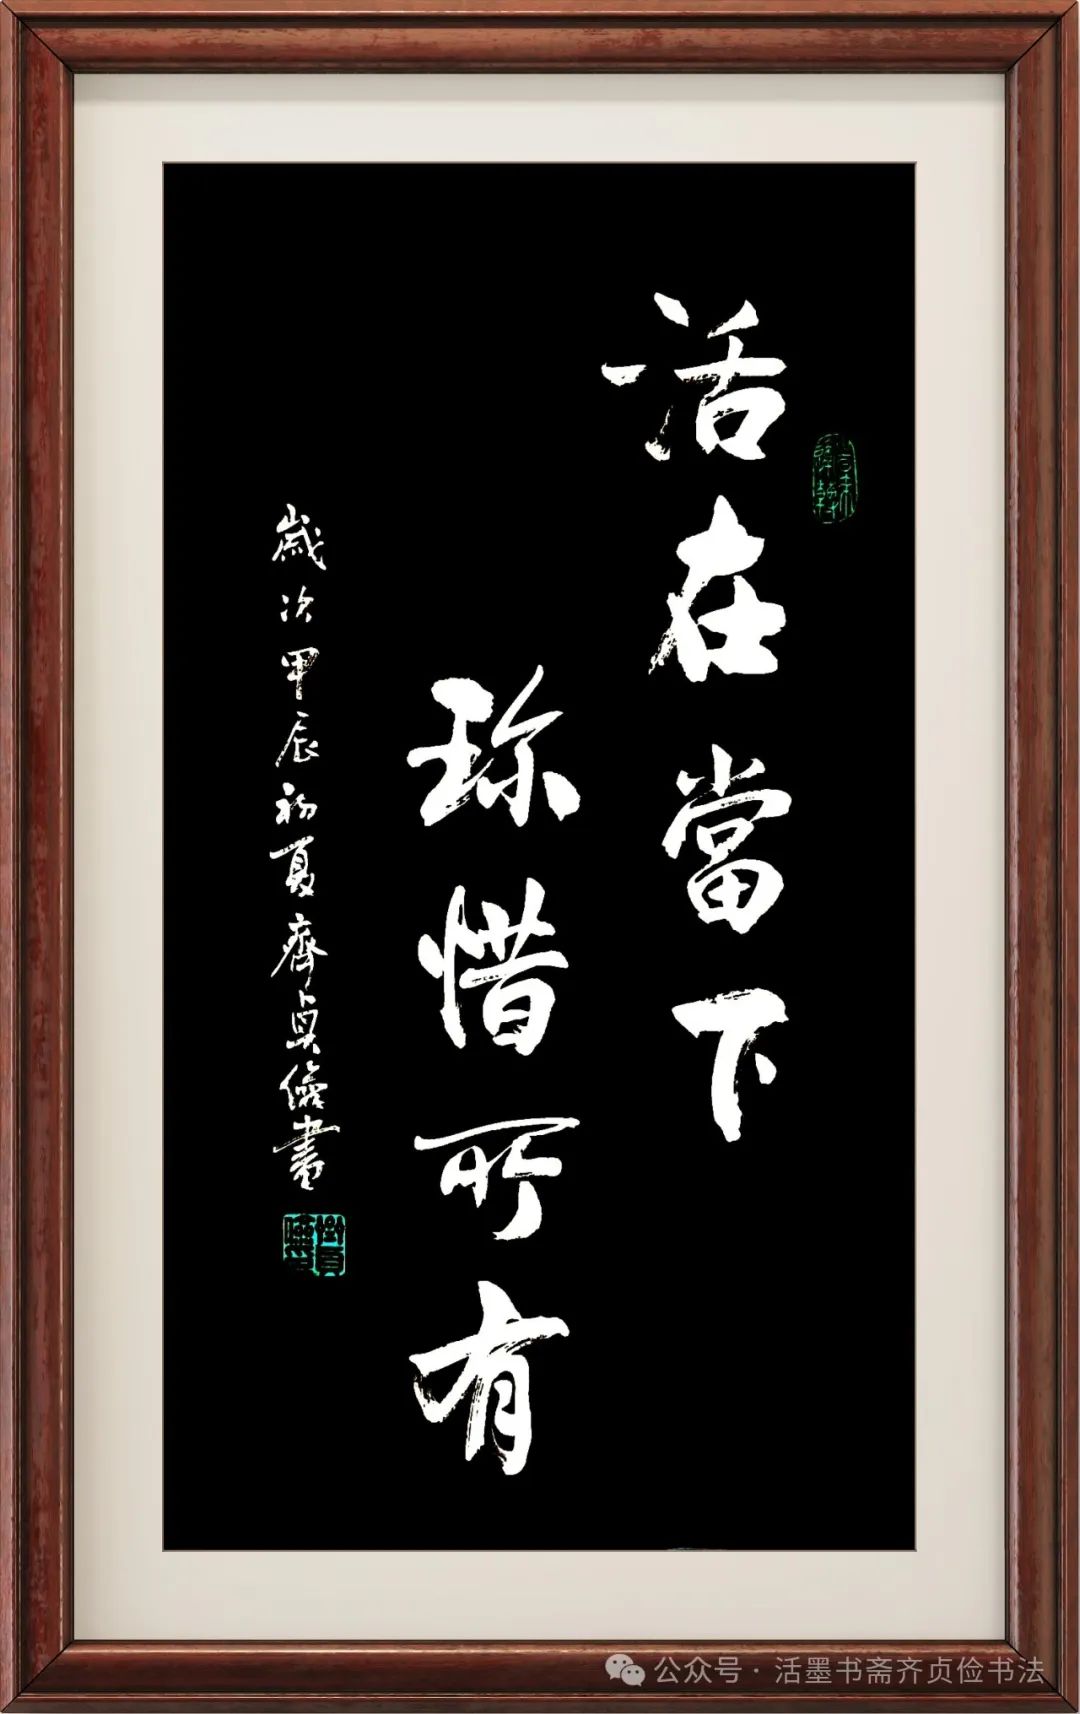 活在當下
珍惜所有
歲次甲辰初夏齊貞儉書
公众号·活墨书斋齐贞俭书法